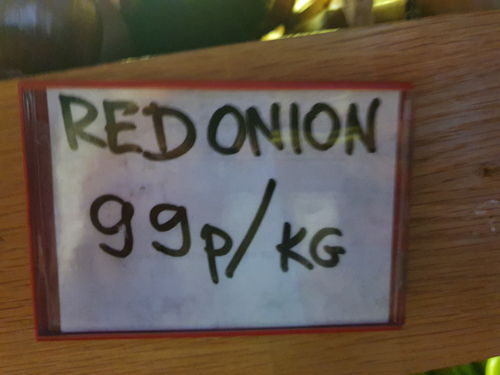 RED ONION
99p/KG